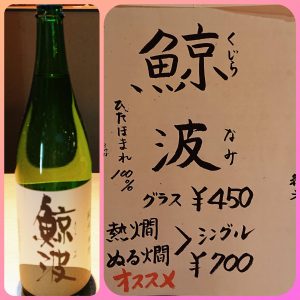 鯨波
鯨
くじら
波
なみ
ひだほまれ
100%
グラス ¥450
熱燗
ぬる燗
> シングル
¥700
オススメ